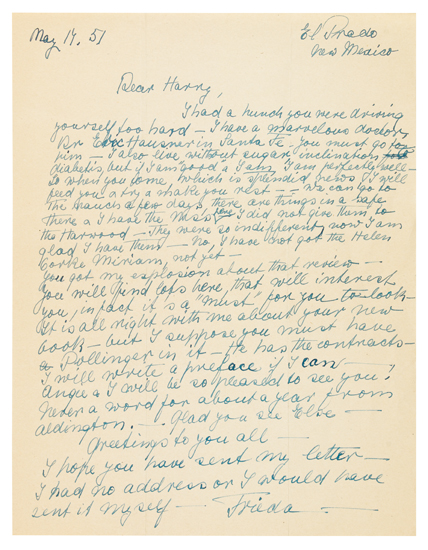 May 14. 51
El Prado
New Mexico
Dear Harry,
I had a hunch you were driving
yourself too hard — I have a marvellous doctor,
Dr Eric Hausner in Santa Fe. You must go to
him — I also live without sugar, inclination
diabetis, but if I am good & I am, I am perfectly well —
So when you come, which is splendid news, I will
feed you & try & make you rest — — we can go to
the ranch a few days, there are things in a safe
there & I have the Mss, I did not give them to
the Harwood — They were so indifferent, now I am
glad I have them — No, I have not got the Helen
Corke Miriam, not yet —
You got my explosion about that review —
You will find lots here, that will interest
you, in fact it is a "must" for you to look —
It is all right with me about your new
book — but I suppose you must have
Pollinger in it — He has the contracts —
I will write a preface if I can —
Angie & I will be so pleased to see you!
Never a word for about a year from
Aldington. — Glad you see Else —
Greetings to you all —
I hope you have sent my letter —
I had no address or I would have
sent it myself — Frieda —